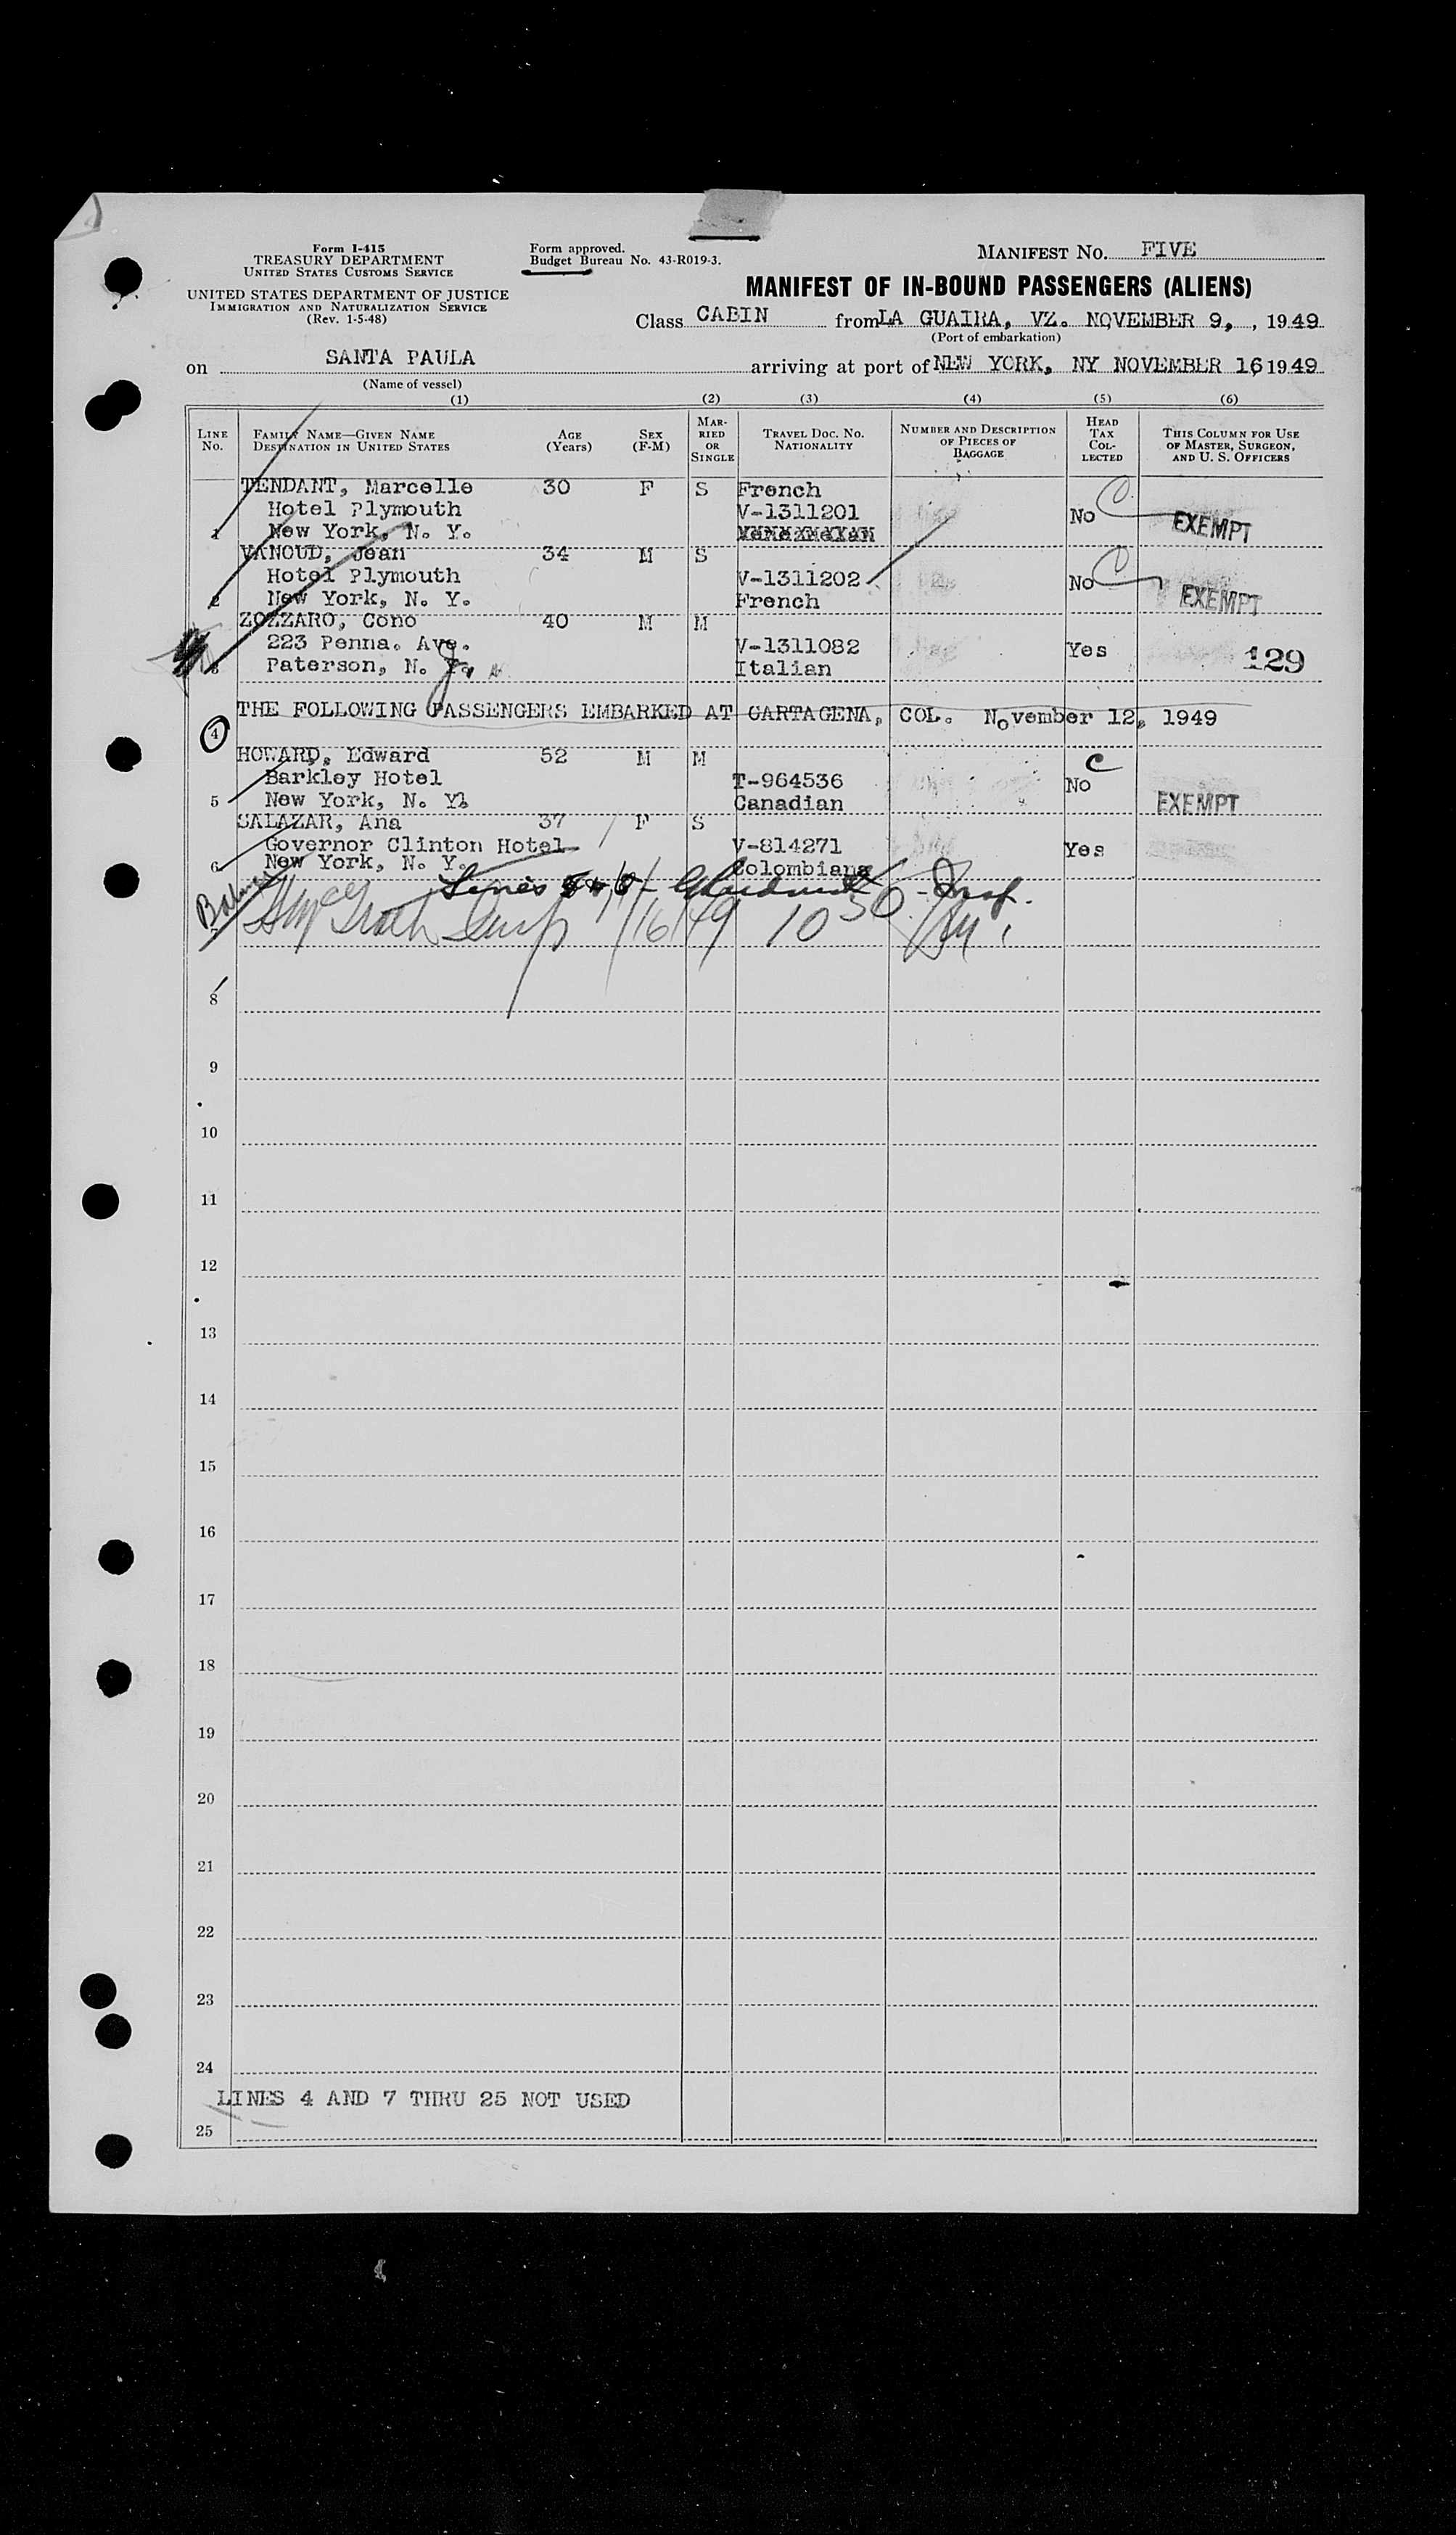 Form I-415
TREASURY DEPARTMENT
UNITED STATES CUSTOMS SERVICE
UNITED STATES DEPARTMENT OF JUSTICE
IMMIGRATION AND NATURALIZATION SERVICE
(Rev. 1-5-48)
Form approved.
Budget Bureau No. 43-R019-3.
MANIFEST NO. FIVE
MANIFEST OF IN-BOUND PASSENGERS (ALIENS)
Class CABIN from LA GUAIRA, VZ. NOVEMBER 9, , 1949
(Port of embarkation)
on SANTA PAULA arriving at port of NEW YORK, NY NOVEMBER 16 1949
(Name of vessel)
(1) (2) (3) (4) (5) (6)
LINE NO. FAMILY NAME—GIVEN NAME DESTINATION IN UNITED STATES AGE (Years) SEX (F-M) MARRIED OR SINGLE TRAVEL DOC. NO. NATIONALITY NUMBER AND DESCRIPTION OF PIECES OF BAGGAGE HEAD TAX COLLECTED THIS COLUMN FOR USE OF MASTER, SURGEON, AND U. S. OFFICERS
TENDANT, Marcelle 30 F S French
Hotel Plymouth V-1311201
1 New York, N. Y. No C EXEMPT
VANOUD, Jean 34 M S
Hotel Plymouth V-1311202 No C
2 New York, N. Y. French EXEMPT
ZOZZARO, Cono 40 M M
223 Penna. Ave. V-1311082 Yes 129
3 Paterson, N. J. Italian
THE FOLLOWING PASSENGERS EMBARKED AT CARTAGENA, COL. November 12, 1949
4
HOWARD, Edward 52 M M C
Barkley Hotel T-964536 No
5 New York, N. Y. Canadian EXEMPT
SALAZAR, Ana 37 F S
Governor Clinton Hotel V-814271 Yes
6 New York, N. Y. Colombiana
Lines 5 & 6 Insp.
11/16/49 10 30
8
9
10
11
12
13
14
15
16
17
18
19
20
21
22
23
24
LINES 4 AND 7 THRU 25 NOT USED
25